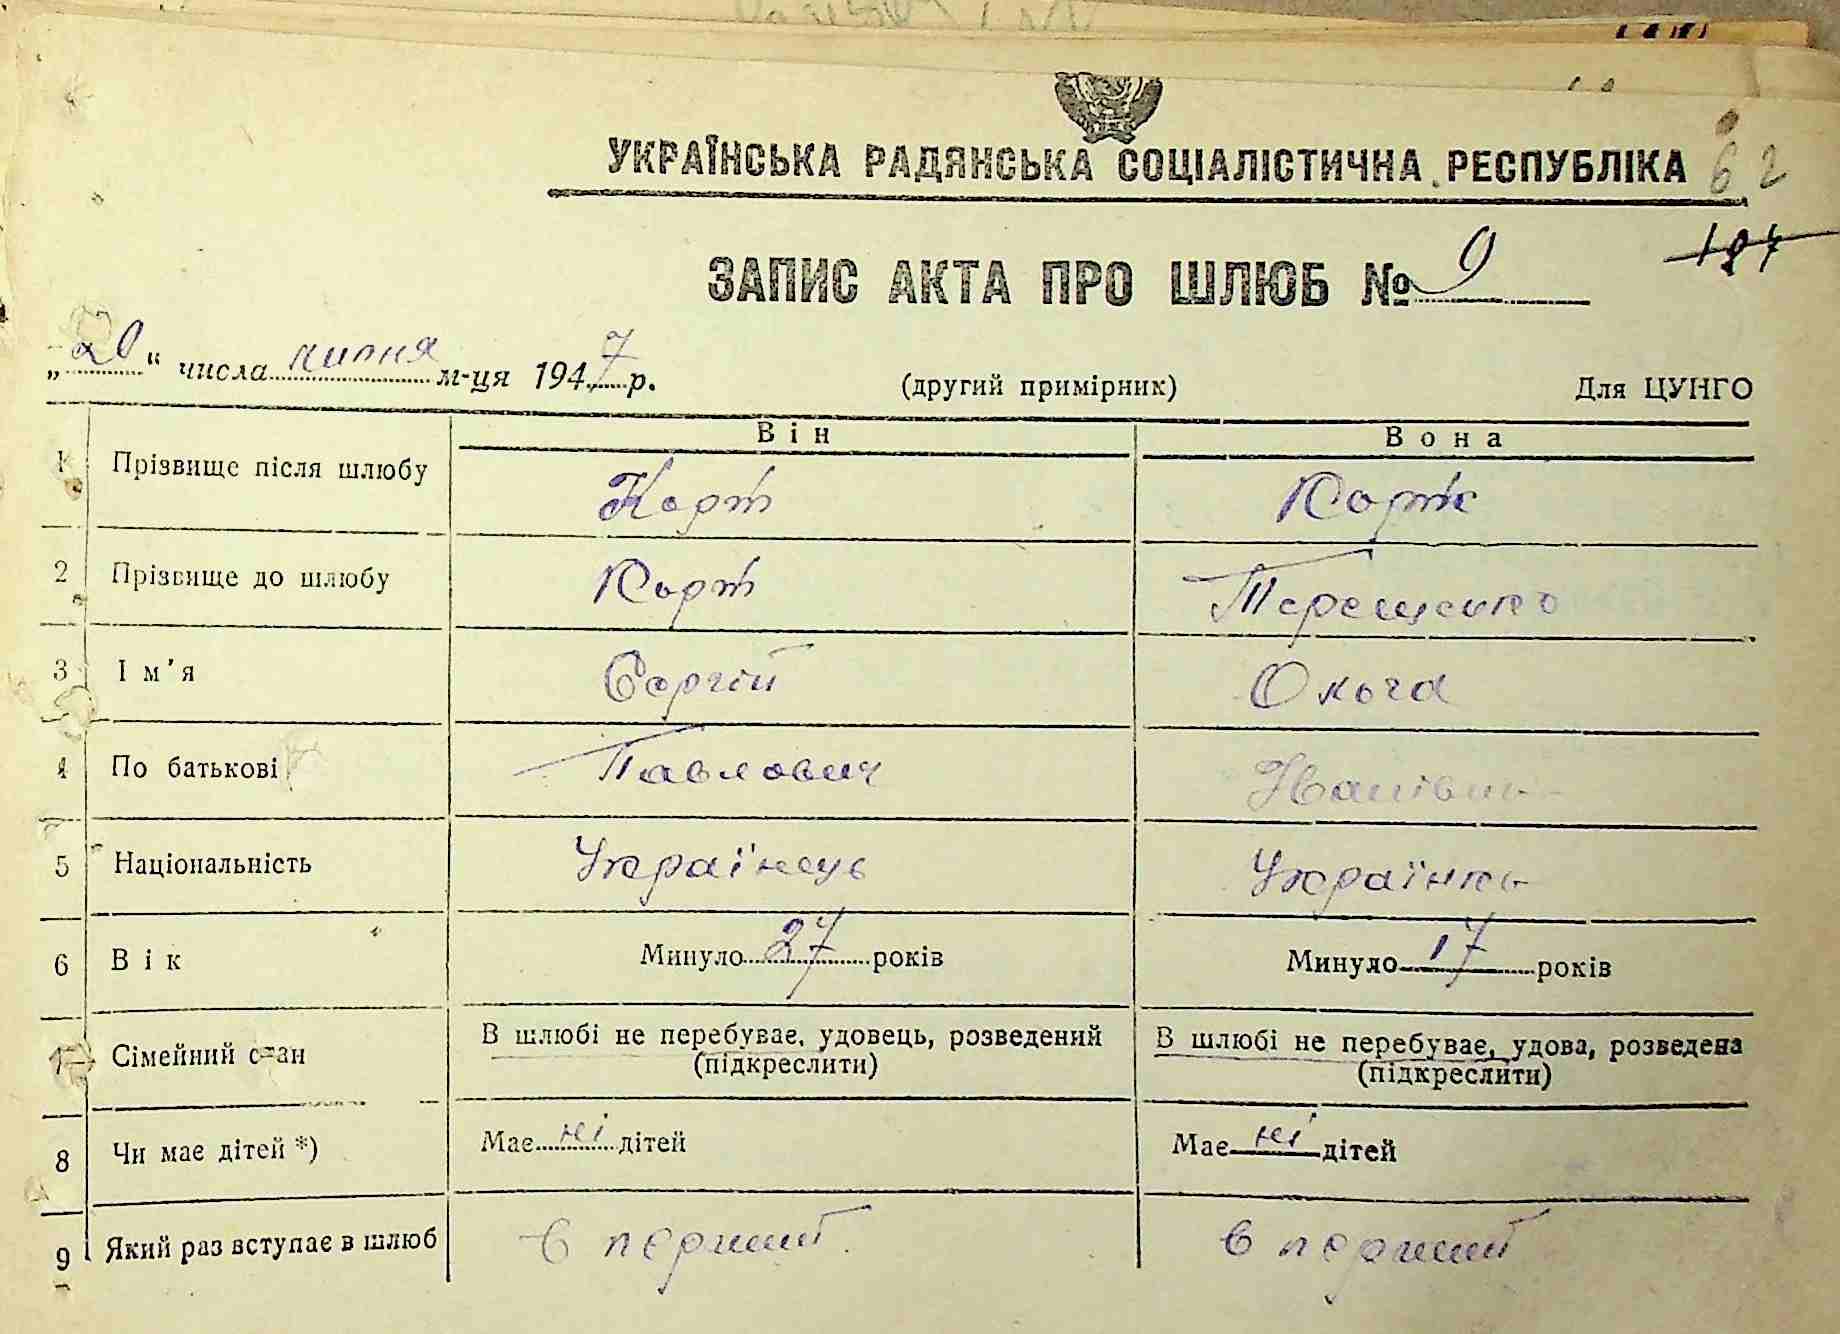 УКРАЇНСЬКА РАДЯНСЬКА СОЦІАЛІСТИЧНА РЕСПУБЛІКА 62
ЗАПИС АКТА ПРО ШЛЮБ № 9
„20“ числа липня м-ця 1947 р. (другий примірник) Для ЦУНГО
Він Вона
1 Прізвище після шлюбу Корт Корт
2 Прізвище до шлюбу Корт Терещенко
3 Ім'я Сергій Ольга
4 По батькові Павлович Іванівна
5 Національність Українець Українка
6 Вік Минуло 27 років Минуло 17 років
7 Сімейний стан В шлюбі не перебуває, удовець, розведений В шлюбі не перебуває, удова, розведена
(підкреслити) (підкреслити)
8 Чи має дітей *) Має ні дітей Має ні дітей
9 Який раз вступає в шлюб в перший в перший